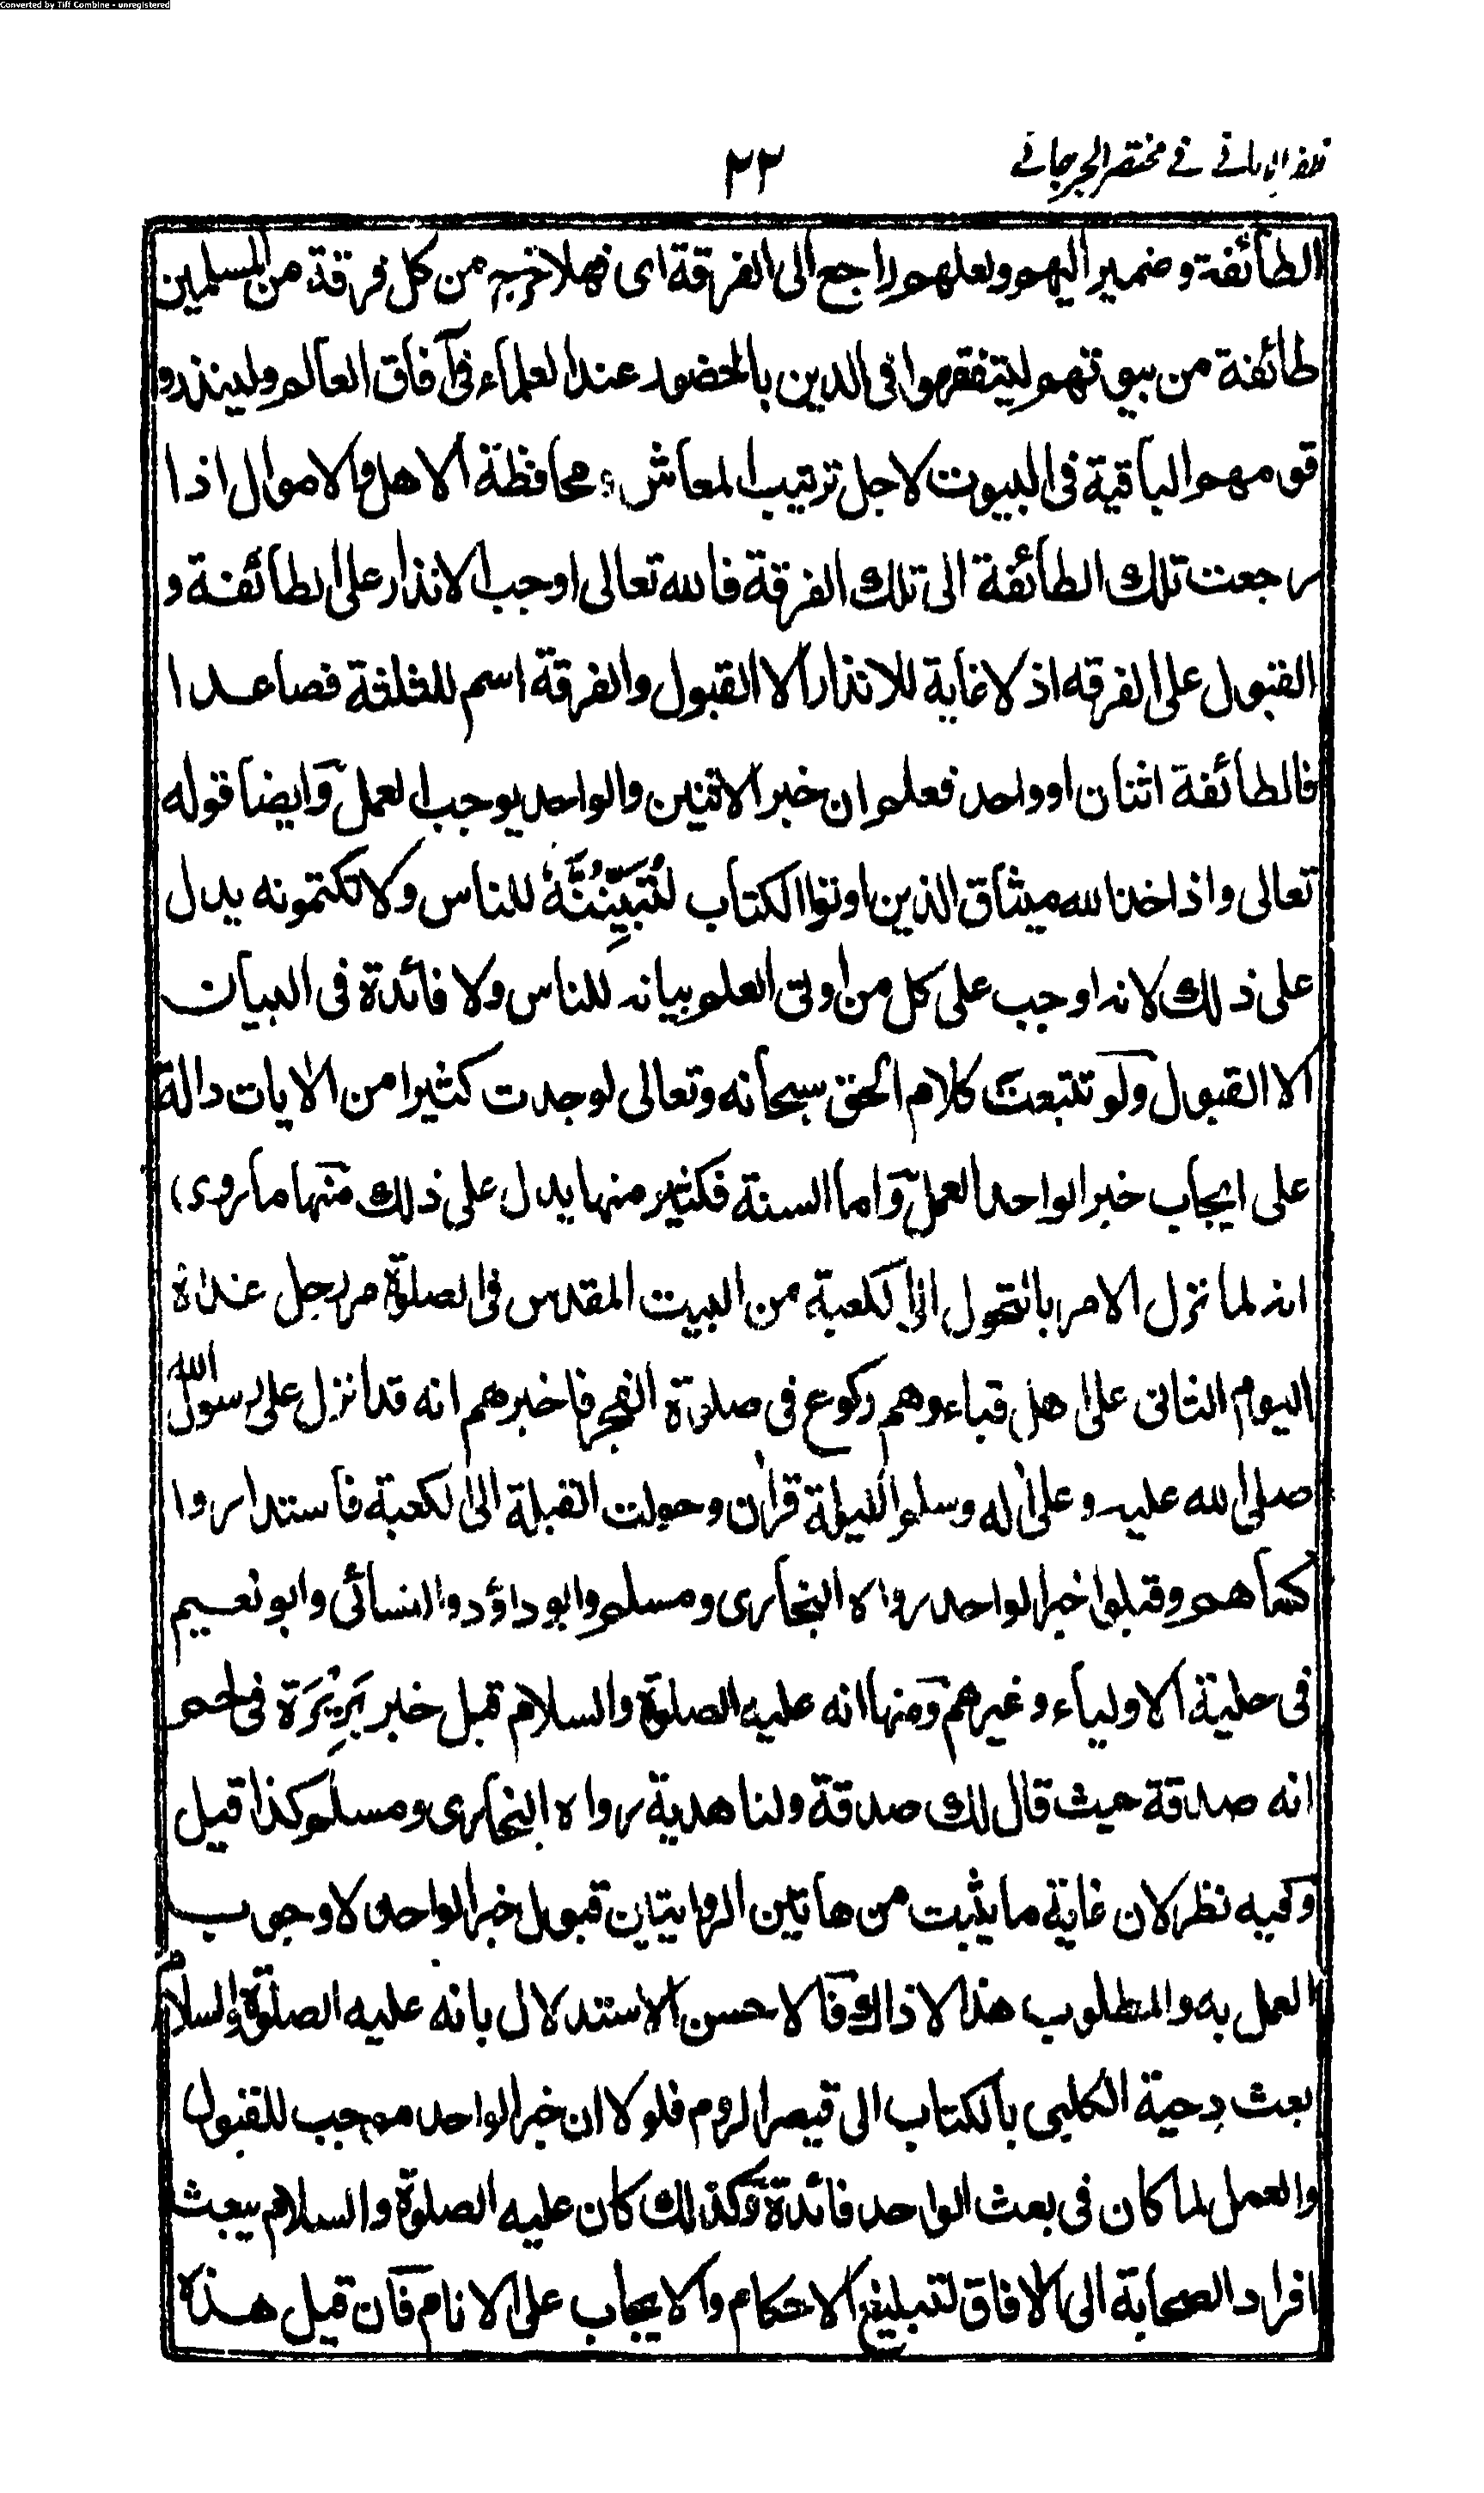 Converted by Tiff Combine - unregistered
ظفر الاماني في مختصر الجرجاني
٢٣
الطائفة وضمير اليهم ولعلهم راجع الى الفرقة اى فهلا خرج من كل فرقة من المسلمين
طائفة من بيوتهم ليتفقهوا فى الدين بالحضور عند العلماء فى آفاق العالم ولينذروا
قومهم الباقية فى البيوت لاجل ترتيب المعاش ومحافظة الاهل والاموال اذا
رجعت تلك الطائفة الى تلك الفرقة فالله تعالى اوجب الانذار على الطائفة و
القبول على الفرقه اذ لا غاية للانذار الا القبول والفرقة اسم للثلثة فصاعدا
فالطائفة اثنان او واحد فعلم ان خبر الاثنين والواحد يوجب العمل وايضا قوله
تعالى واذ اخذ الله ميثاق الذين اوتوا الكتاب لَتُبَيِّنُنَّهٗ للناس ولا تكتمونه يدل
على ذلك لانه اوجب على كل من اوتى العلم بيانه للناس ولا فائدة فى البيان
الا القبول ولو تتبعت كلام الحق سبحانه وتعالى لوجدت كثيرا من الايات دالة
على ايجاب خبر الواحد العمل واما السنة فكثير منها يدل على ذلك منها ما روى
انه لما نزل الامر بالتحول الى الكعبة من البيت المقدس فى الصلوة مر رجل غداة
اليوم الثانى على اهل قباء وهم ركوع فى صلوة الفجر فاخبرهم انه قد انزل على رسول الله
صلى الله عليه وعلى اٰله وسلم الليلة قراٰن وحولت القبلة الى الكعبة فاستداروا
كما هم وقبلوا خبر الواحد رواه البخارى ومسلم وابو داؤد والنسائى وابو نعيم
فى حلية الاولياء وغيرهم ومنها انه عليه الصلوة والسلام قبل خبر بَرِيْرَة فى لحم
انه صدقة حيث قال لك صدقة ولنا هدية رواه البخارى ومسلم كذا قيل
وفيه نظر لان غاية ما يثبت من هاتين الروايتين قبول خبر الواحد لا وجوب
العمل به والمطلوب هذا لا ذاك فالاحسن الاستدلال بانه عليه الصلوة والسلام
بعث دِحية الكلبى بالكتاب الى قيصر الروم فلولا ان خبر الواحد موجب للقبول
والعمل لما كان فى بعث الواحد فائدة وكذلك كان عليه الصلوة والسلام يبعث
افراد الصحابة الى الافاق لتبليغ الاحكام والايجاب على الانام فان قيل هذه